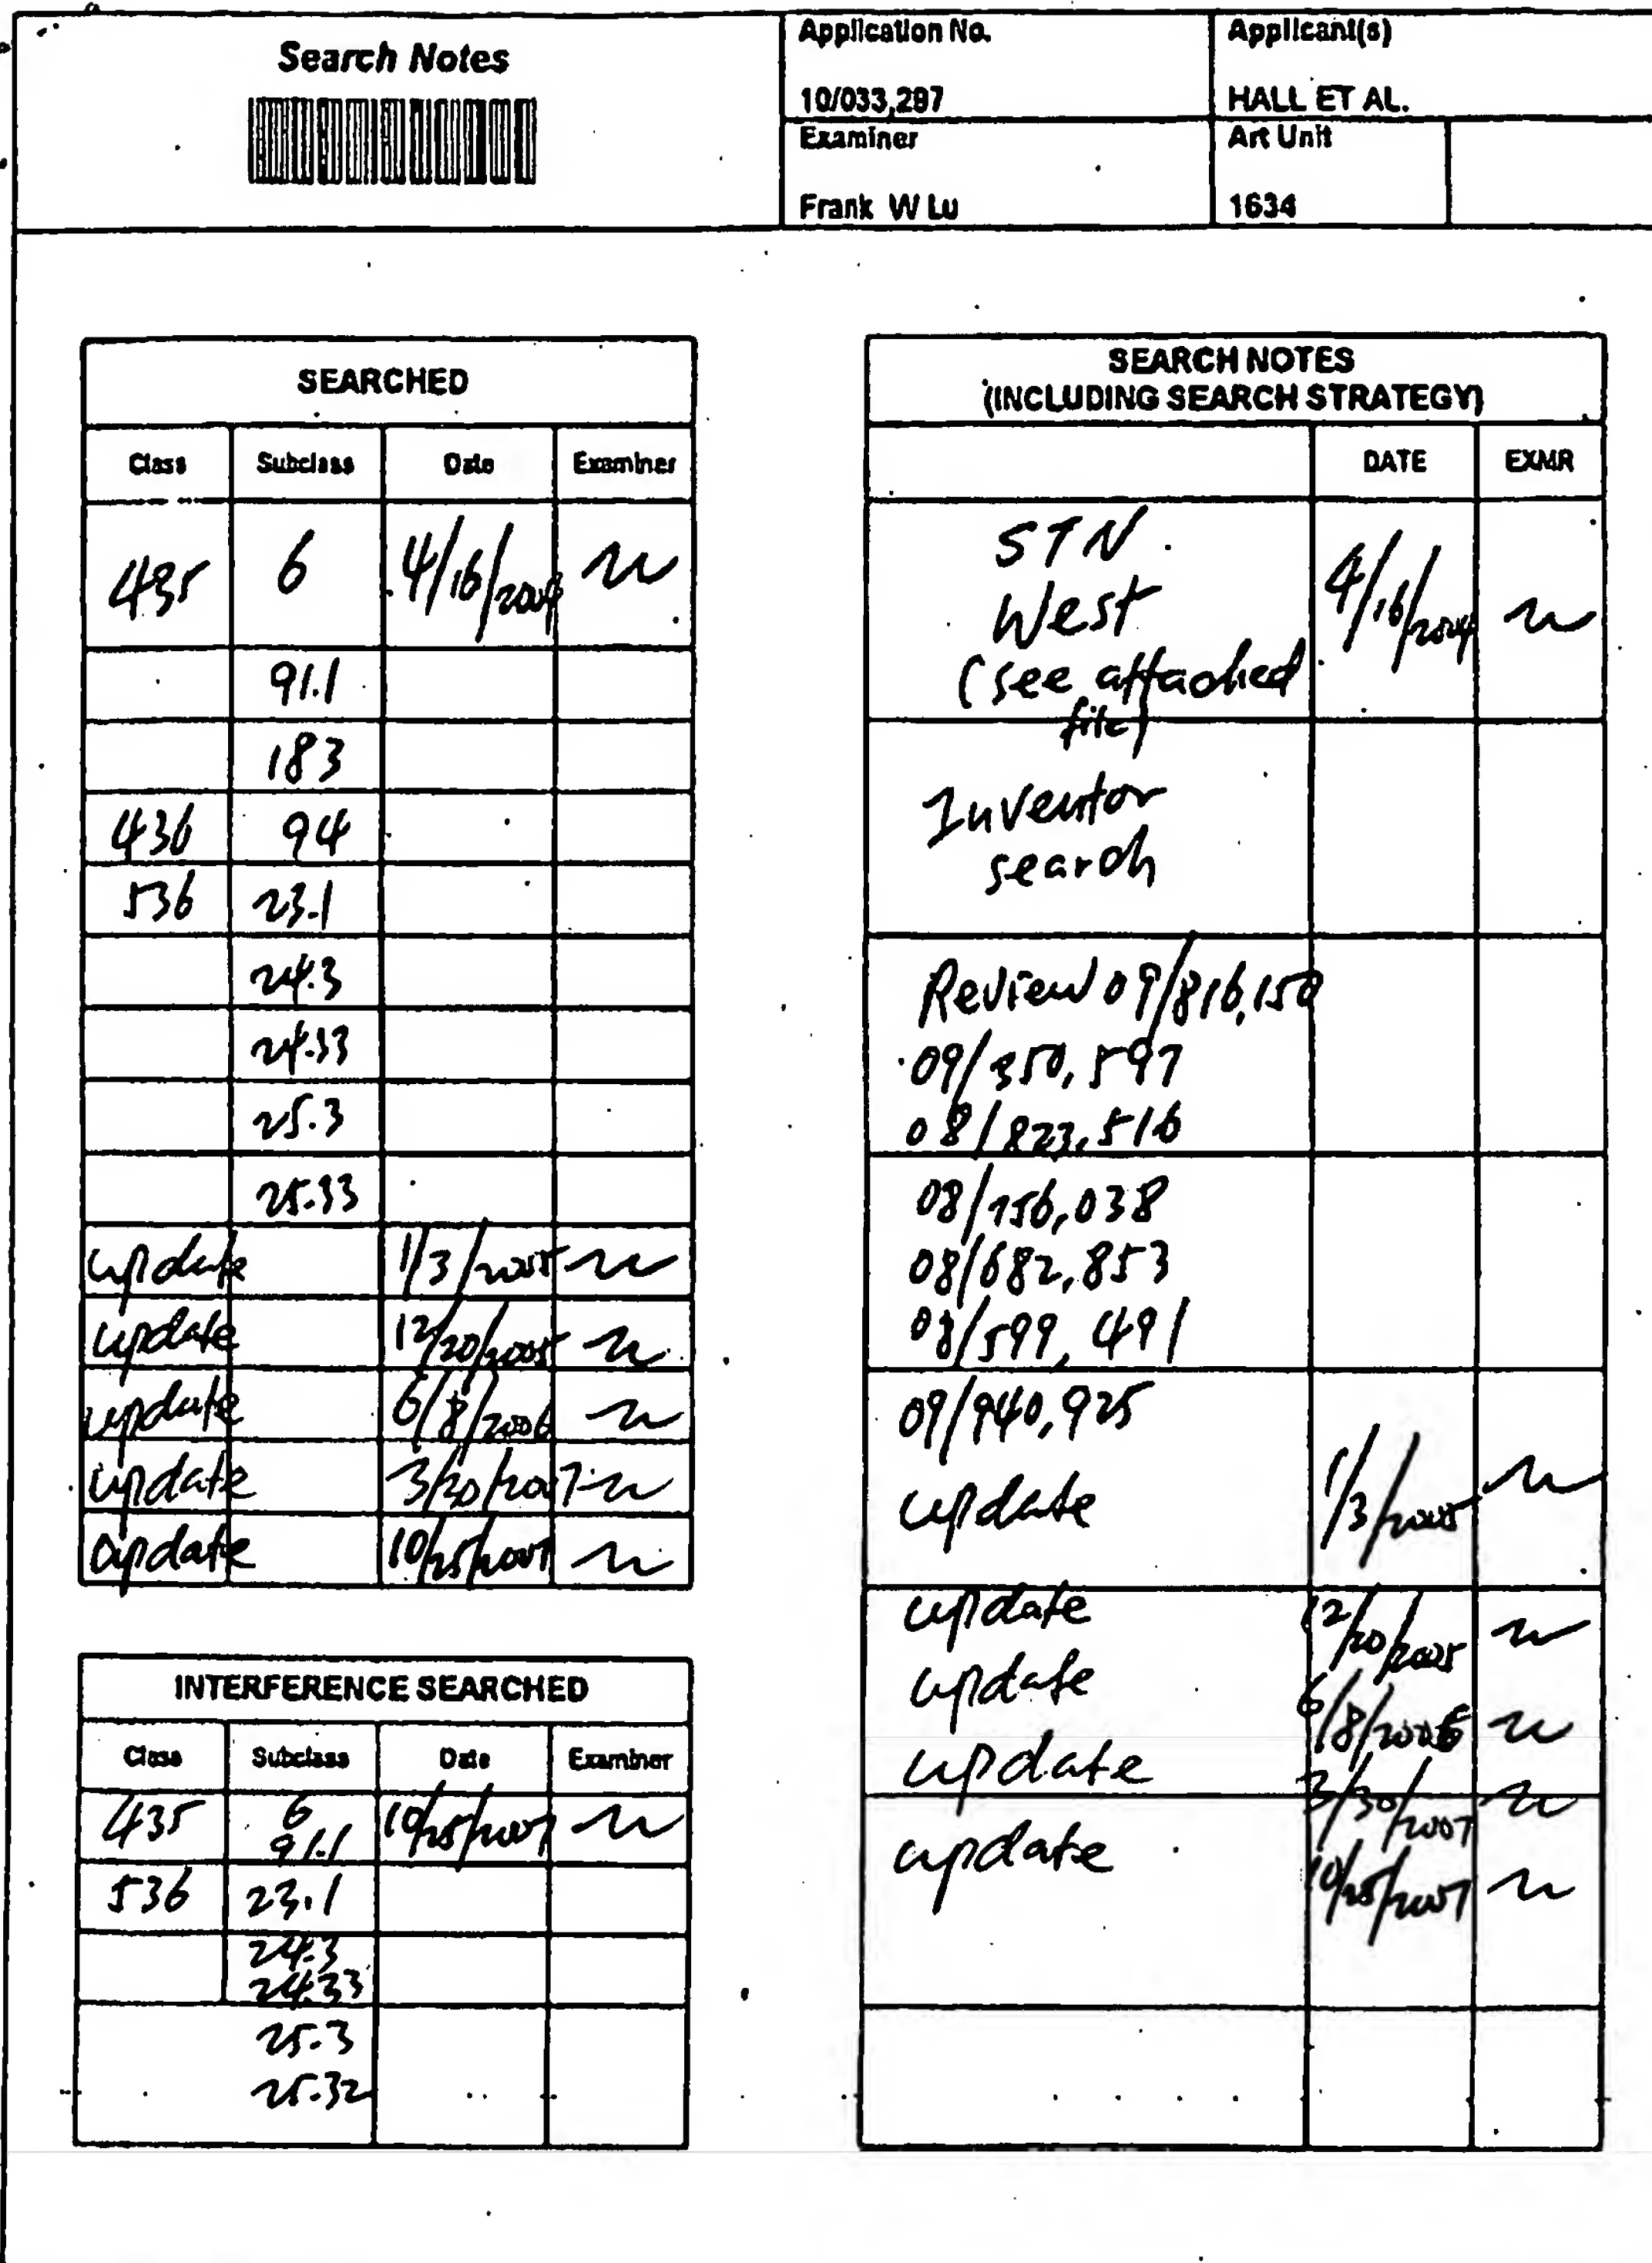 Search Notes
Application No.
10/033,297
Applicant(s)
HALL ET AL.
Examiner
Frank W Lu
Art Unit
1634
SEARCHED
Class Subclass Date Examiner
435 6 4/16/2004
91.1
183
436 94
536 23.1
24.3
24.33
25.3
25.33
update 1/3/2005
update 12/20/2005
update 6/8/2006
update 3/30/2007
update 10/25/2007
INTERFERENCE SEARCHED
Class Subclass Date Examiner
435 6 10/25/2007
91.1
536 23.1
24.3
24.33
25.3
25.32
SEARCH NOTES
(INCLUDING SEARCH STRATEGY)
DATE EXMR
STN
West 4/16/2004
(see attached
file)
Inventor
search
Review 09/816,150
09/350,597
08/823,516
08/756,038
08/682,853
08/599,491
09/940,925
update 1/3/2005
update 12/20/2005
update 6/8/2006
update 3/30/2007
update 10/25/2007